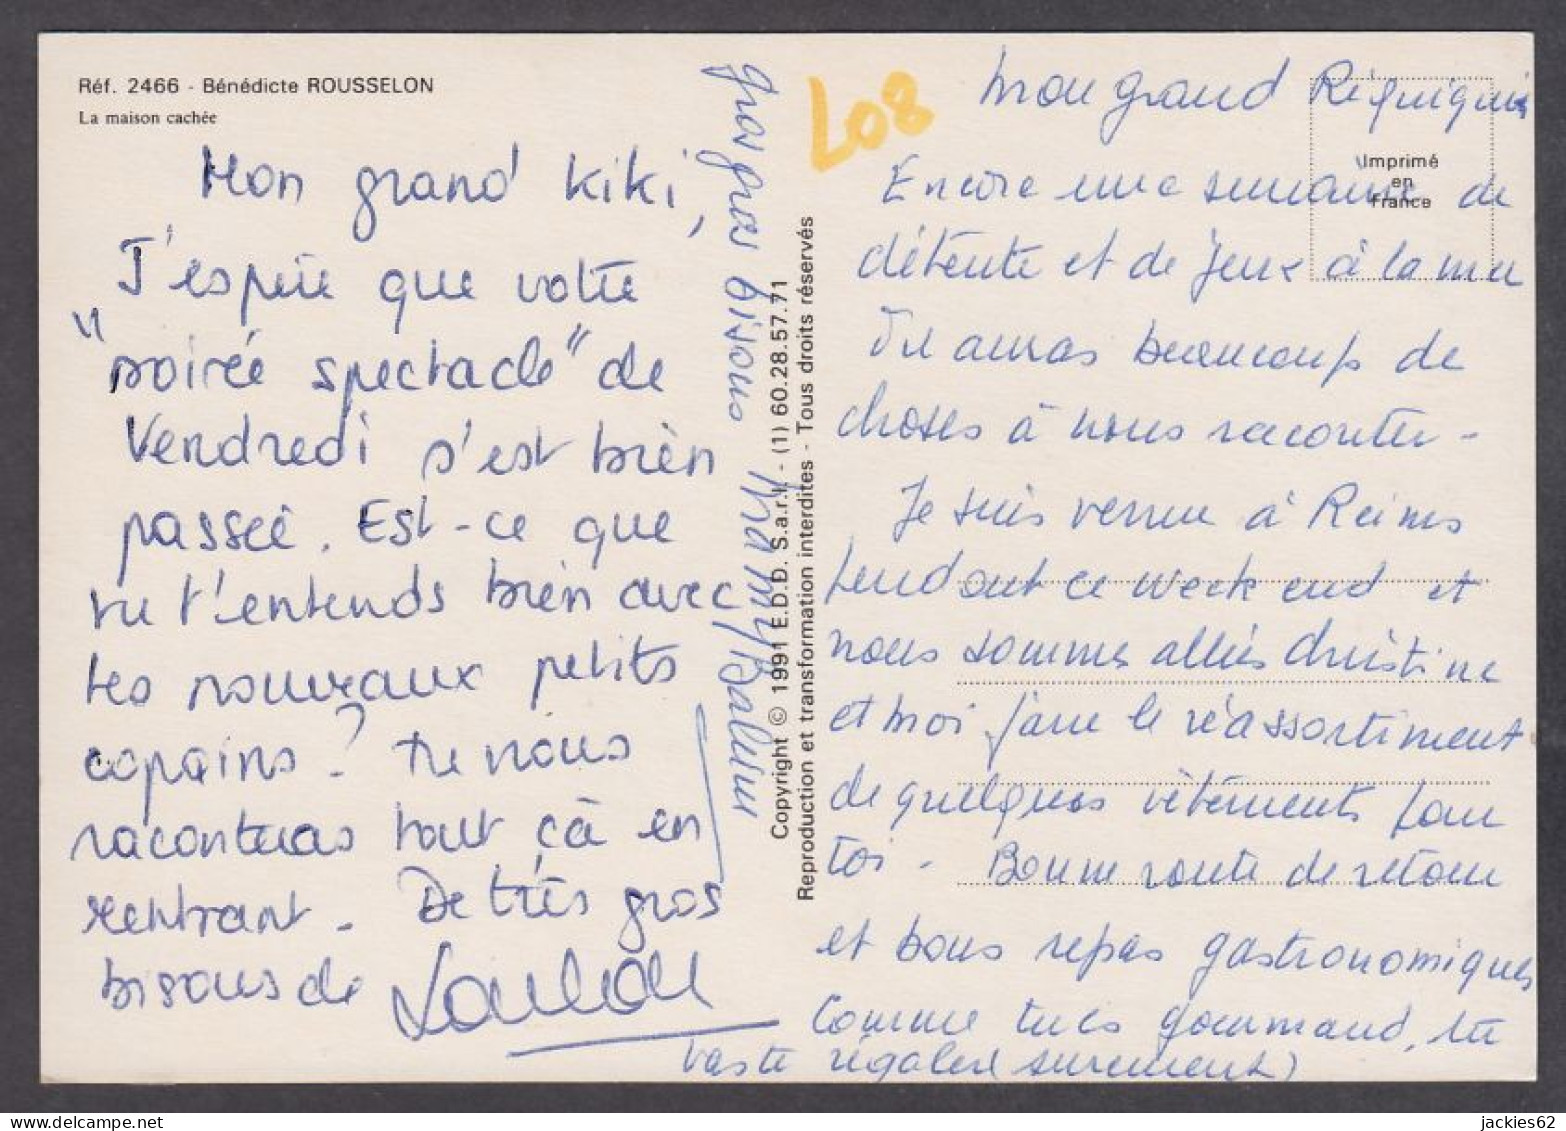 Réf. 2466 - Bénédicte ROUSSELON
La maison cachée
Mon grand kiki,
J'espère que votre
"soirée spectacle" de
Vendredi s'est bien
passée. Est-ce que
tu t'entends bien avec
tes nouveaux petits
copains? Tu nous
raconteras tout çà en
rentrant. De très gros
bisous de
gros gros bisous Mamy
Copyright © 1991 E.D.D. S.a.r.l. - (1) 60.28.57.71
Reproduction et transformation interdites - Tous droits réservés
L08
Imprimé
en
France
Mon grand
Encore une semaine de
détente et de jeux à la mer
Tu auras beaucoup de
choses à nous raconter -
Je suis venue à Reims
pendant ce week end et
nous sommes allés christine
et moi faire le réassortiment
de quelques vêtements pour
toi - Bonne route de retour
et bons repas gastronomiques
Comme tu es gourmand, tu
vas te régaler (surement)
jackies62